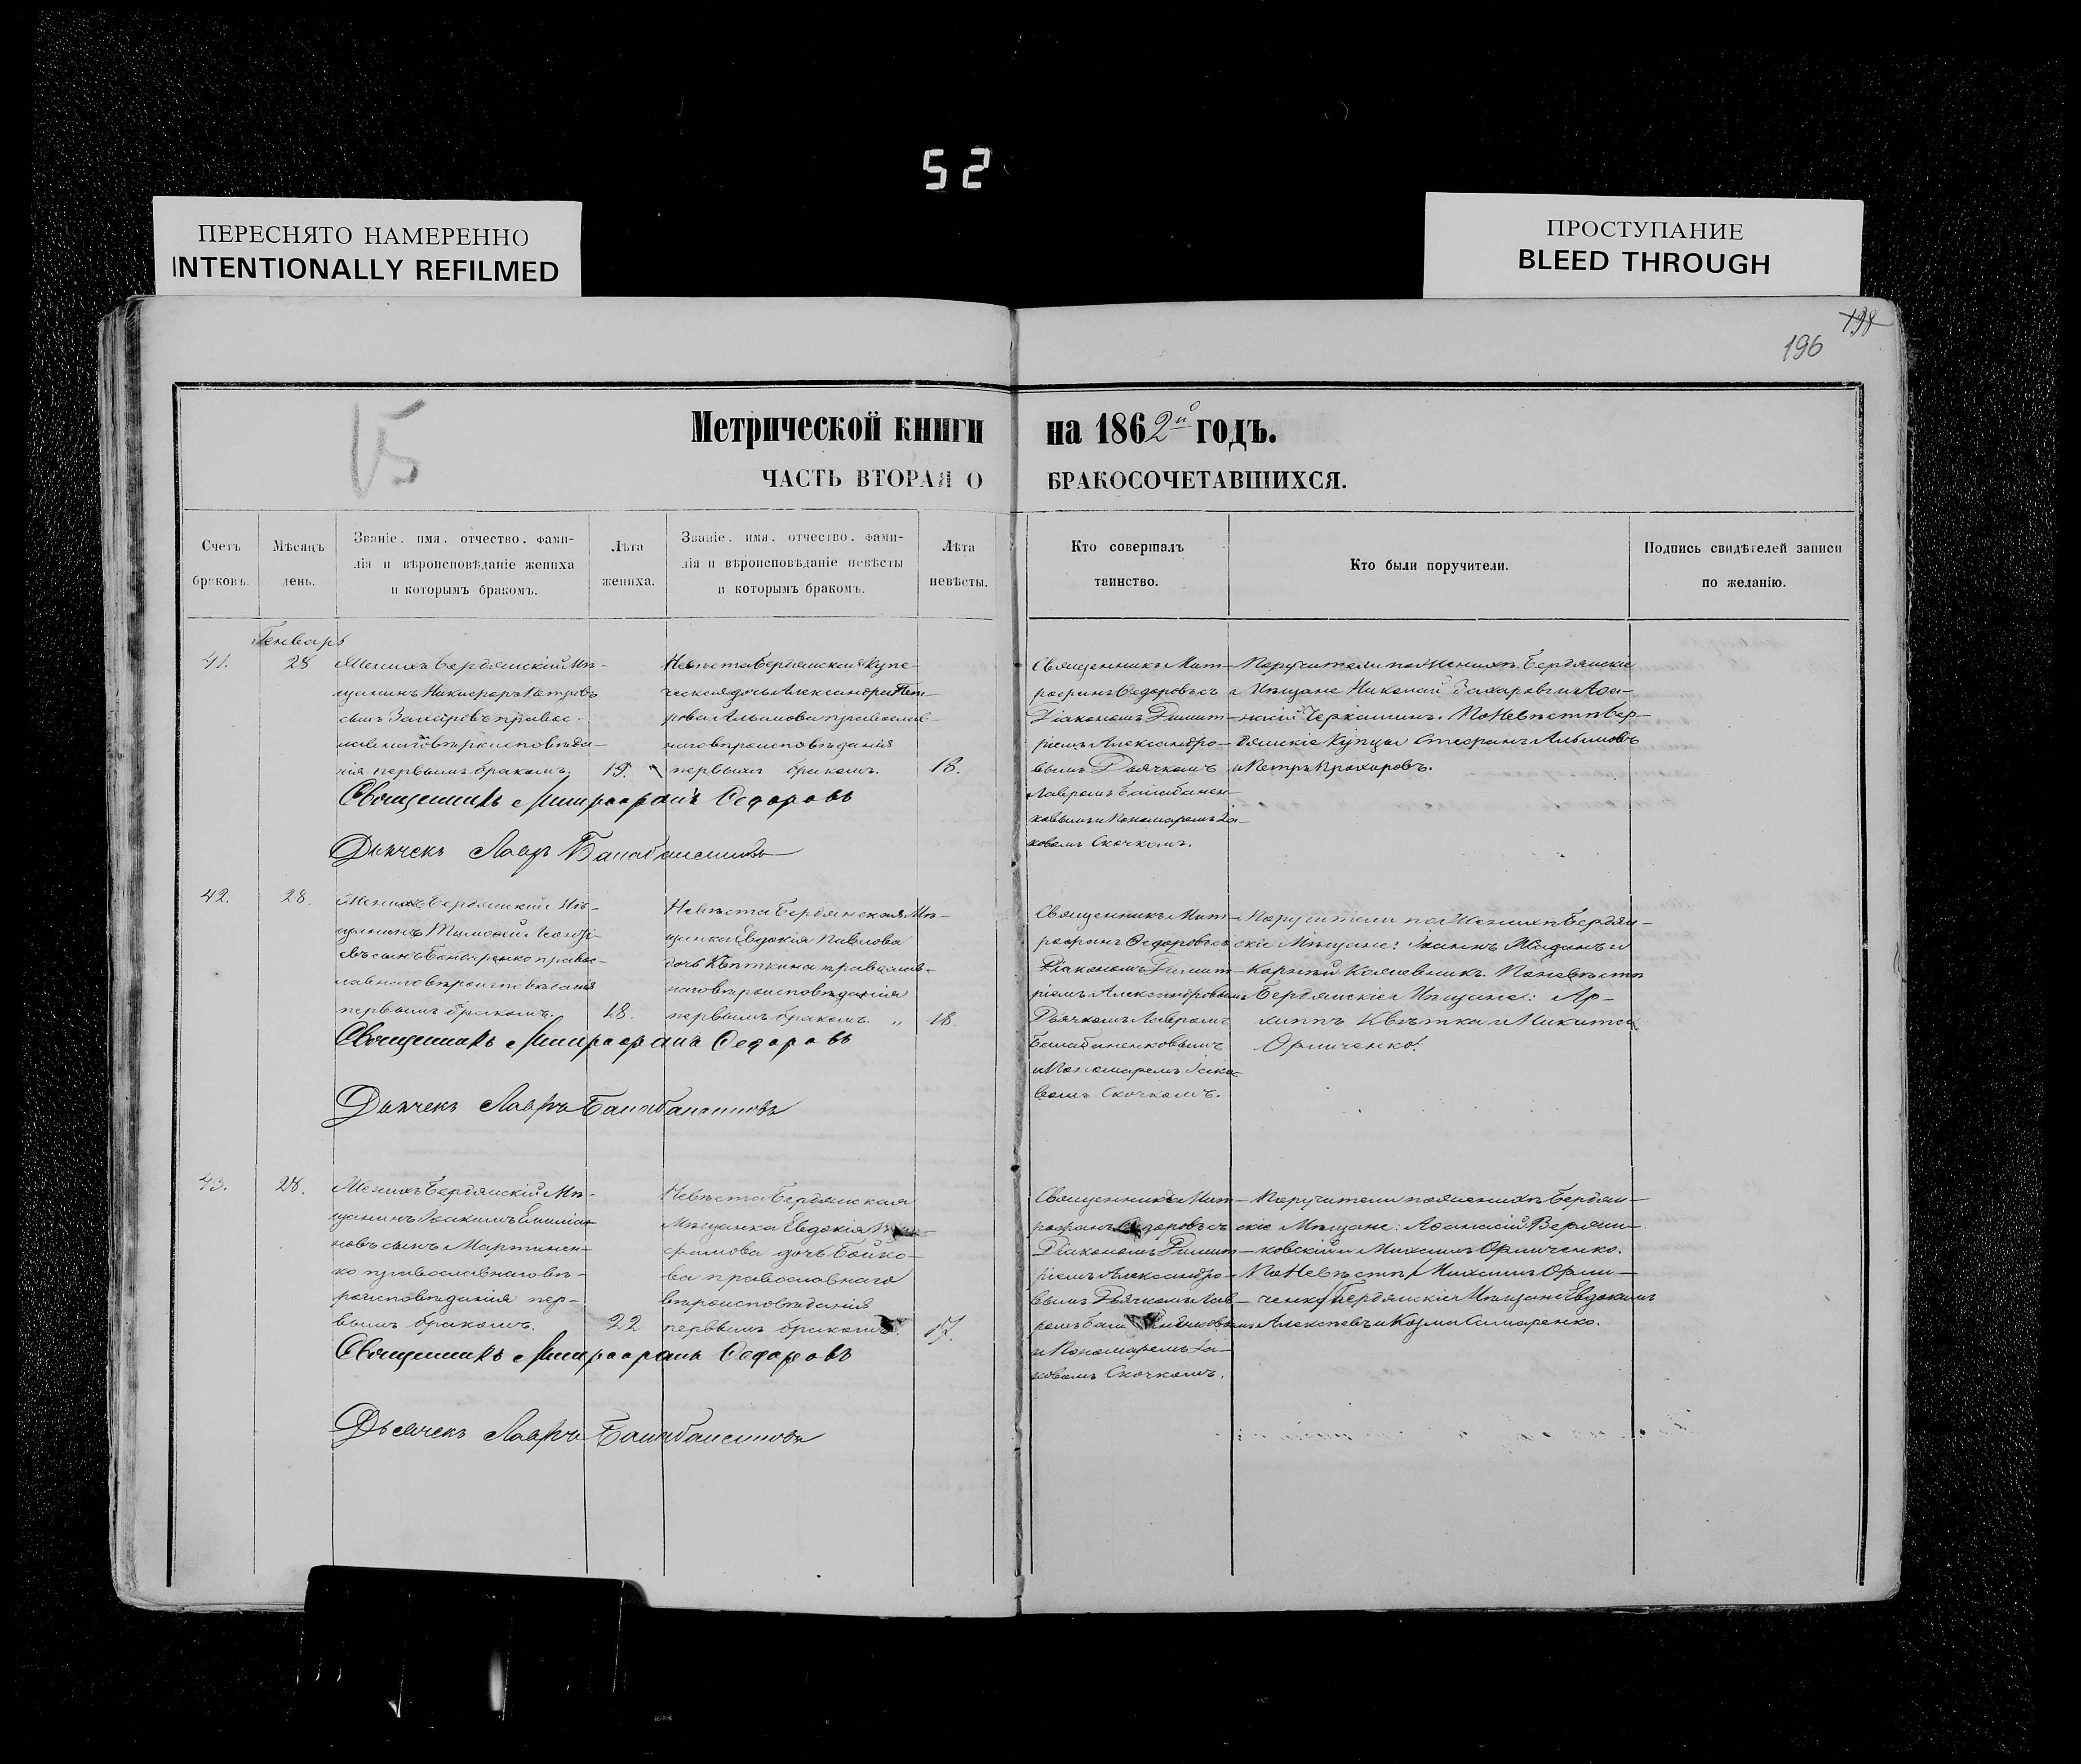 52
ПЕРЕСНЯТО НАМЕРЕННО
INTENTIONALLY REFILMED
ПРОСТУПАНИЕ
BLEED THROUGH
196
Метрической книги на 1862й годъ.
ЧАСТЬ ВТОРАЯ О БРАКОСОЧЕТАВШИХСЯ.
Счетъ браковъ.
Мѣсяцъ день.
Званіе, имя, отчество, фами-
лія и вѣроисповѣданіе жениха
и которымъ бракомъ.
Лѣта жениха.
Званіе, имя, отчество, фами-
лія и вѣроисповѣданіе невѣсты
и которымъ бракомъ.
Лѣта невѣсты.
Кто совершалъ таинство.
Кто были поручители.
Подпись свидѣтелей записи
по желанію.
Генварь
41.
28
Женихъ Бердянскій Мѣ-
щанинъ Никифоръ Петровъ
сынъ Захаровъ правос-
лавнаго вѣроисповѣда-
нія первымъ бракомъ.
19.
Невѣста Бердянская Купе-
ческая дочь Александра Пет-
рова Алымова православ-
наго вѣроисповѣданія
первымъ бракомъ.
18.
Священникъ Мит-
рофанъ Ѳедоровъ съ
Діакономъ Димит-
ріемъ Александро-
вымъ Дьячкомъ
Лавромъ Балабанен-
ковымъ и Пономаремъ Іа-
ковомъ Скочкомъ.
Поручители по Женихѣ Бердянскіе
Мѣщане Николай Захаровъ и Аѳа-
насій Черкашинъ. По Невѣстѣ Бер-
дянскіе Купцы Стефанъ Алымовъ
и Петръ Прохоровъ.
Священникъ Митрофанъ Ѳедоровъ
Дьячекъ Лавръ Балабаненковъ
42.
28.
Женихъ Бердянскій Мѣ-
щанинъ Тимофей Леонті-
евъ сынъ Бондаренко правос-
лавнаго вѣроисповѣданія
первымъ бракомъ.
18.
Невѣста Бердянская Мѣ-
щанка Евдокія Павлова
дочь Квѣткина православ-
наго вѣроисповѣданія
первымъ бракомъ. „
18.
Священникъ Мит-
рофанъ Ѳедоровъ съ
Діакономъ Димит-
ріемъ Александровымъ
Дьячкомъ Лавромъ
Балабаненковымъ
и Пономаремъ Іако-
вомъ Скочкомъ.
Поручители по Женихѣ Бердян-
скіе Мѣщане: Іоаннъ Жаданъ и
Корнѣй Калиевникъ. По невѣстѣ
Бердянскіе Мѣщане: Ар-
хиппъ Квѣтка и Микита
Орличенко.
Священникъ Митрофанъ Ѳедоровъ
Дьячекъ Лавръ Балабаненковъ
43.
28.
Женихъ Бердянскій Мѣ-
щанинъ Іоакимъ Емилія-
новъ сынъ Мартинен-
ко православнаго вѣ-
роисповѣданія пер-
вымъ бракомъ.
22
Невѣста Бердянская
Мѣщанка Евдокія
фимова дочь Бойко-
ва православнаго
вѣроисповѣданія
первымъ бракомъ.
17.
Священникъ Мит-
рофанъ Ѳедоровъ съ
Діакономъ Димит-
ріемъ Александро-
вымъ Дьячкомъ Лав-
ромъ Балабаненковымъ
и Пономаремъ Іа-
ковомъ Скочкомъ.
Поручители по женихѣ Бердян-
скіе Мѣщане: Аѳанасій Верлин-
ковскій и Михаилъ Орличенко.
По Невѣстѣ Михаилъ Орли-
ченко Бердянскіе Мѣщане Евдокимъ
Алексѣевъ и Козма Самаренко.
Священникъ Митрофанъ Ѳедоровъ
Дьячекъ Лавръ Балабаненковъ